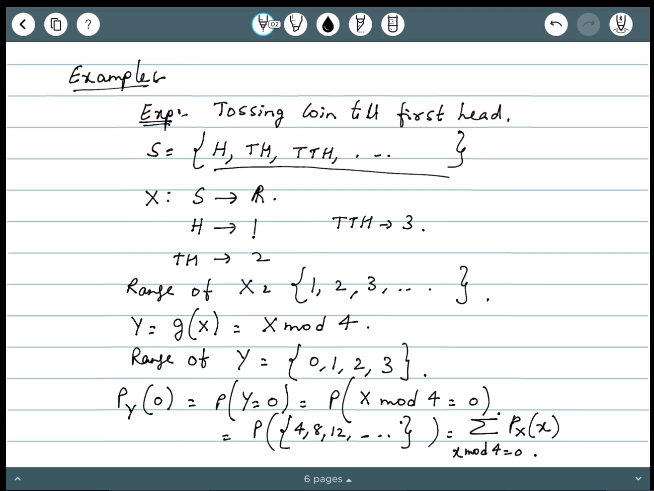 ?
02
Examples
Exp:- Tossing Coin till first head.
S = { H, TH, TTH, . -.. }
X: S → R.
H → 1 TTH → 3.
TH → 2
Range of X = {1, 2, 3, ... . }.
Y = g(x) = X mod 4.
Range of Y = {0, 1, 2, 3}.
P_Y(0) = P(Y=0) = P(X mod 4 = 0).
= P({4, 8, 12, ....}) = Σ P_X(x)
x mod 4 = 0.
6 pages